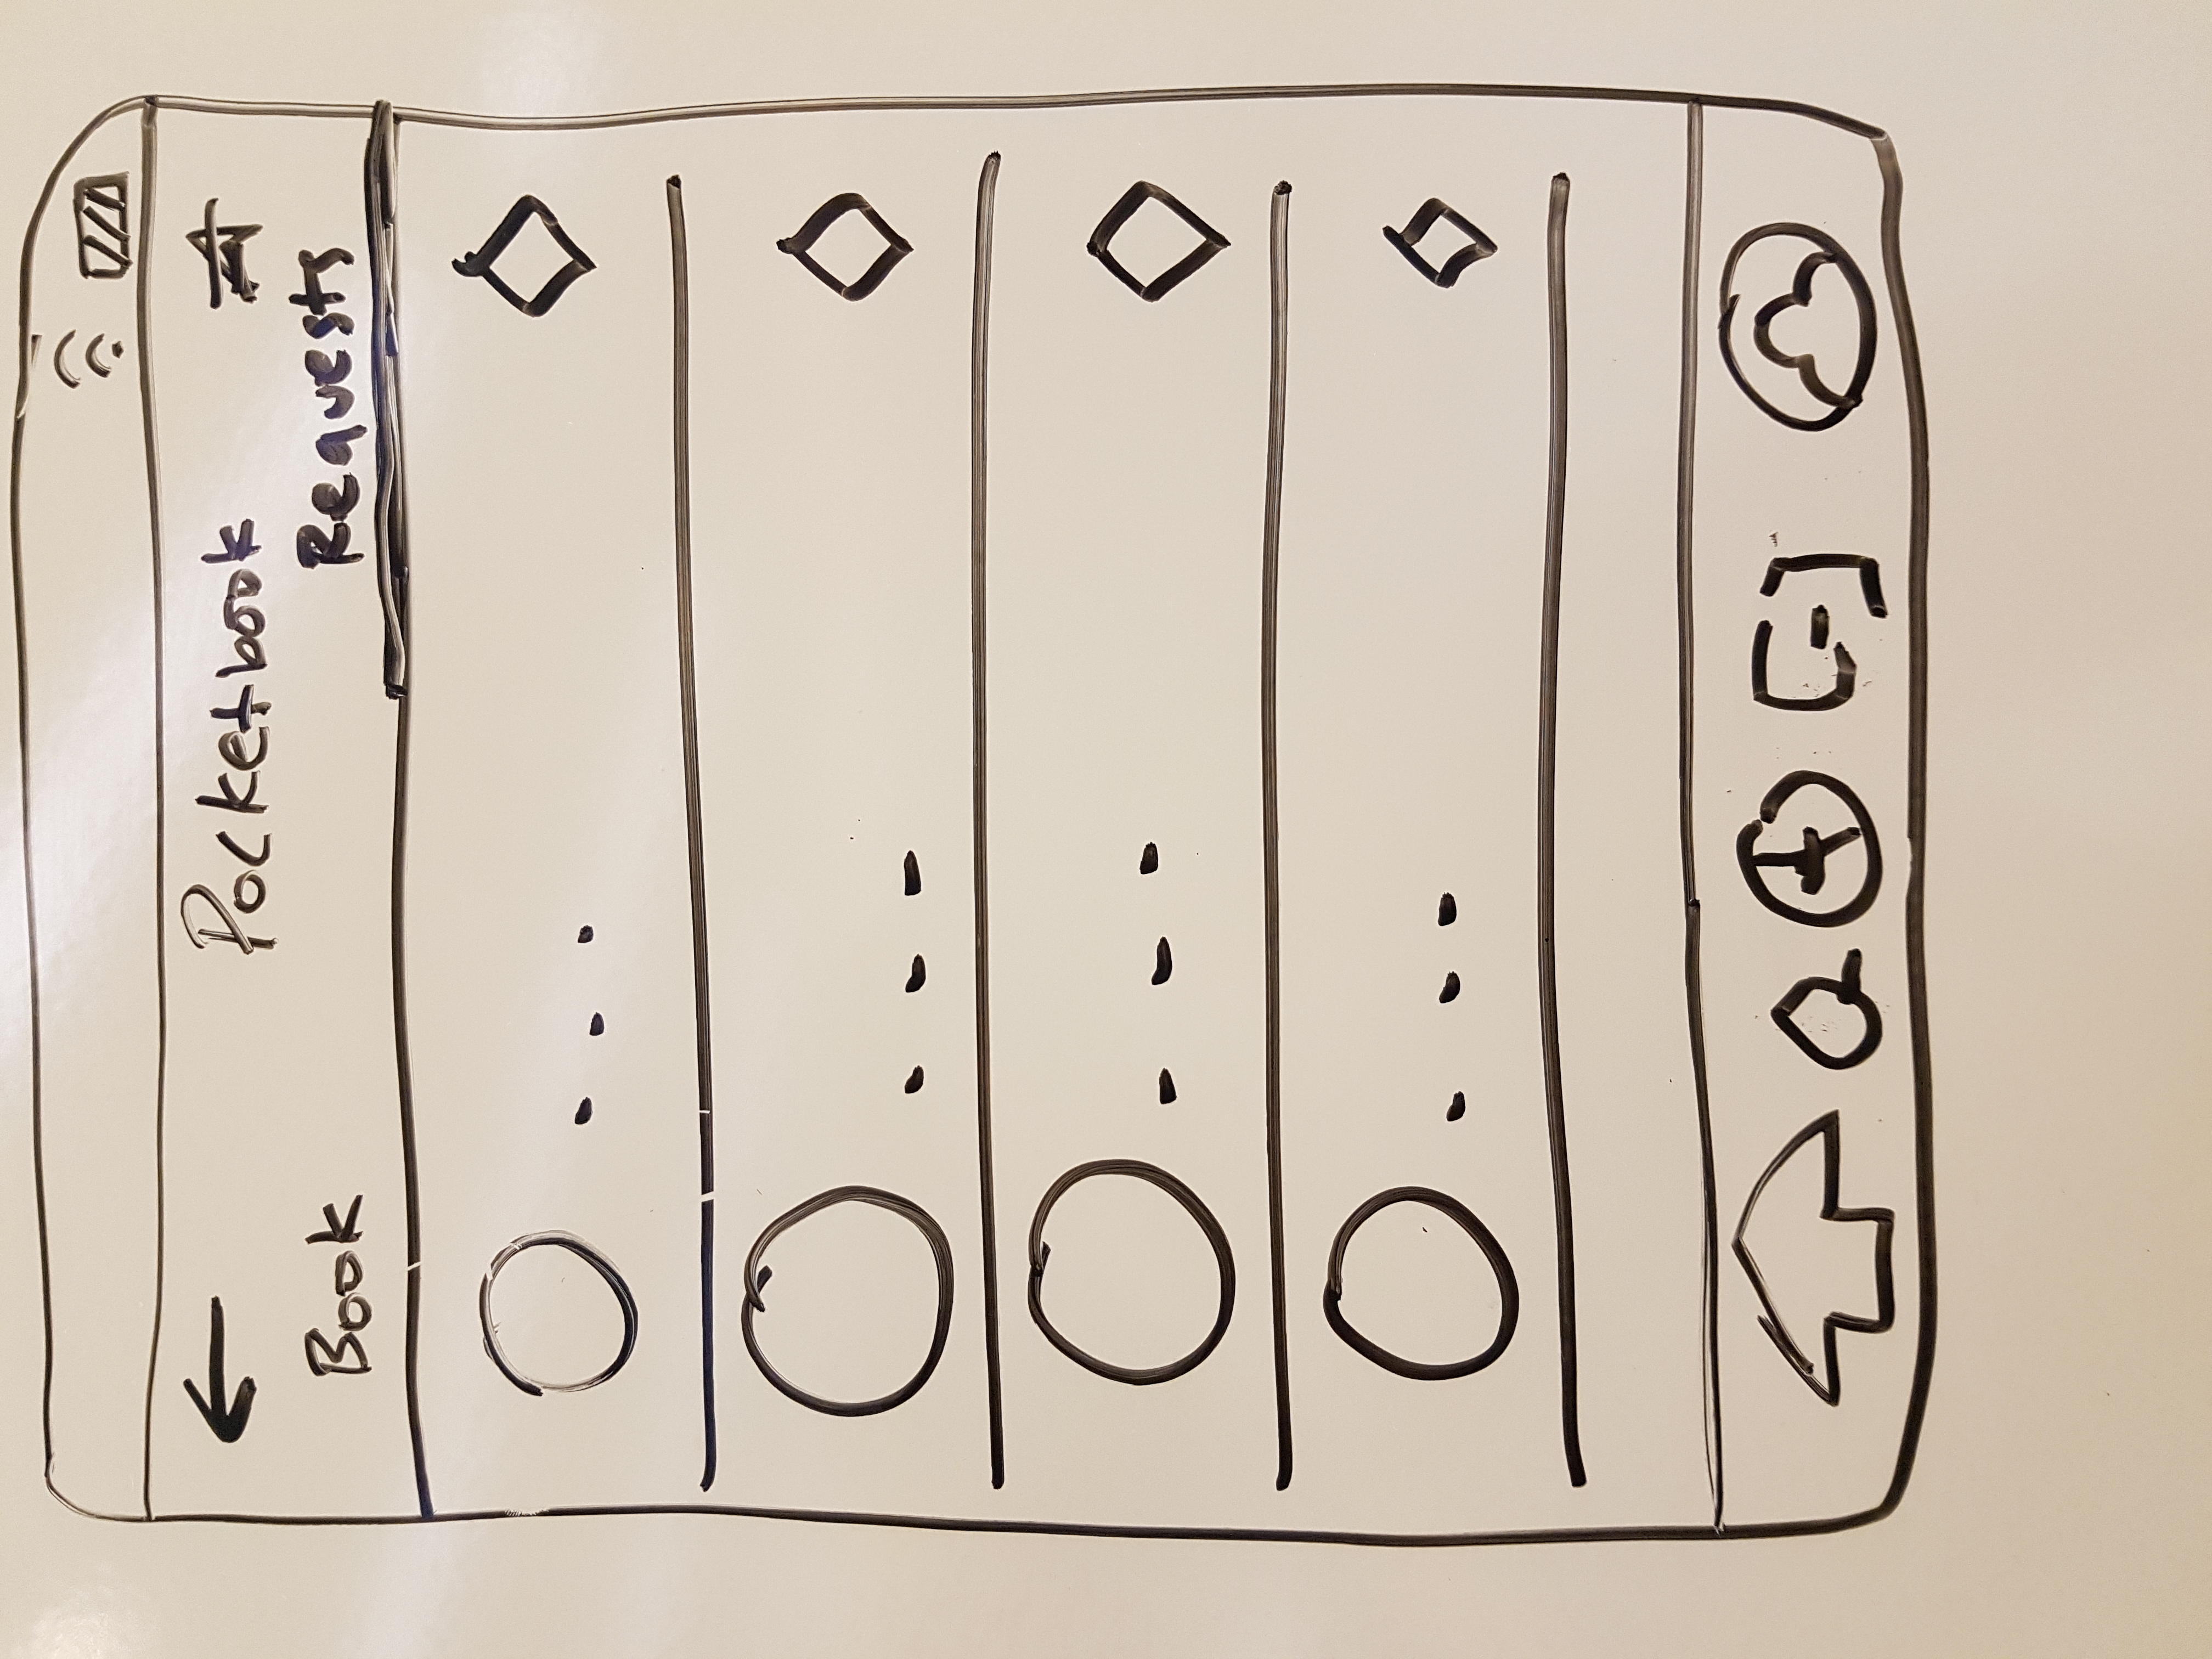 Pocketbook
Book Requests